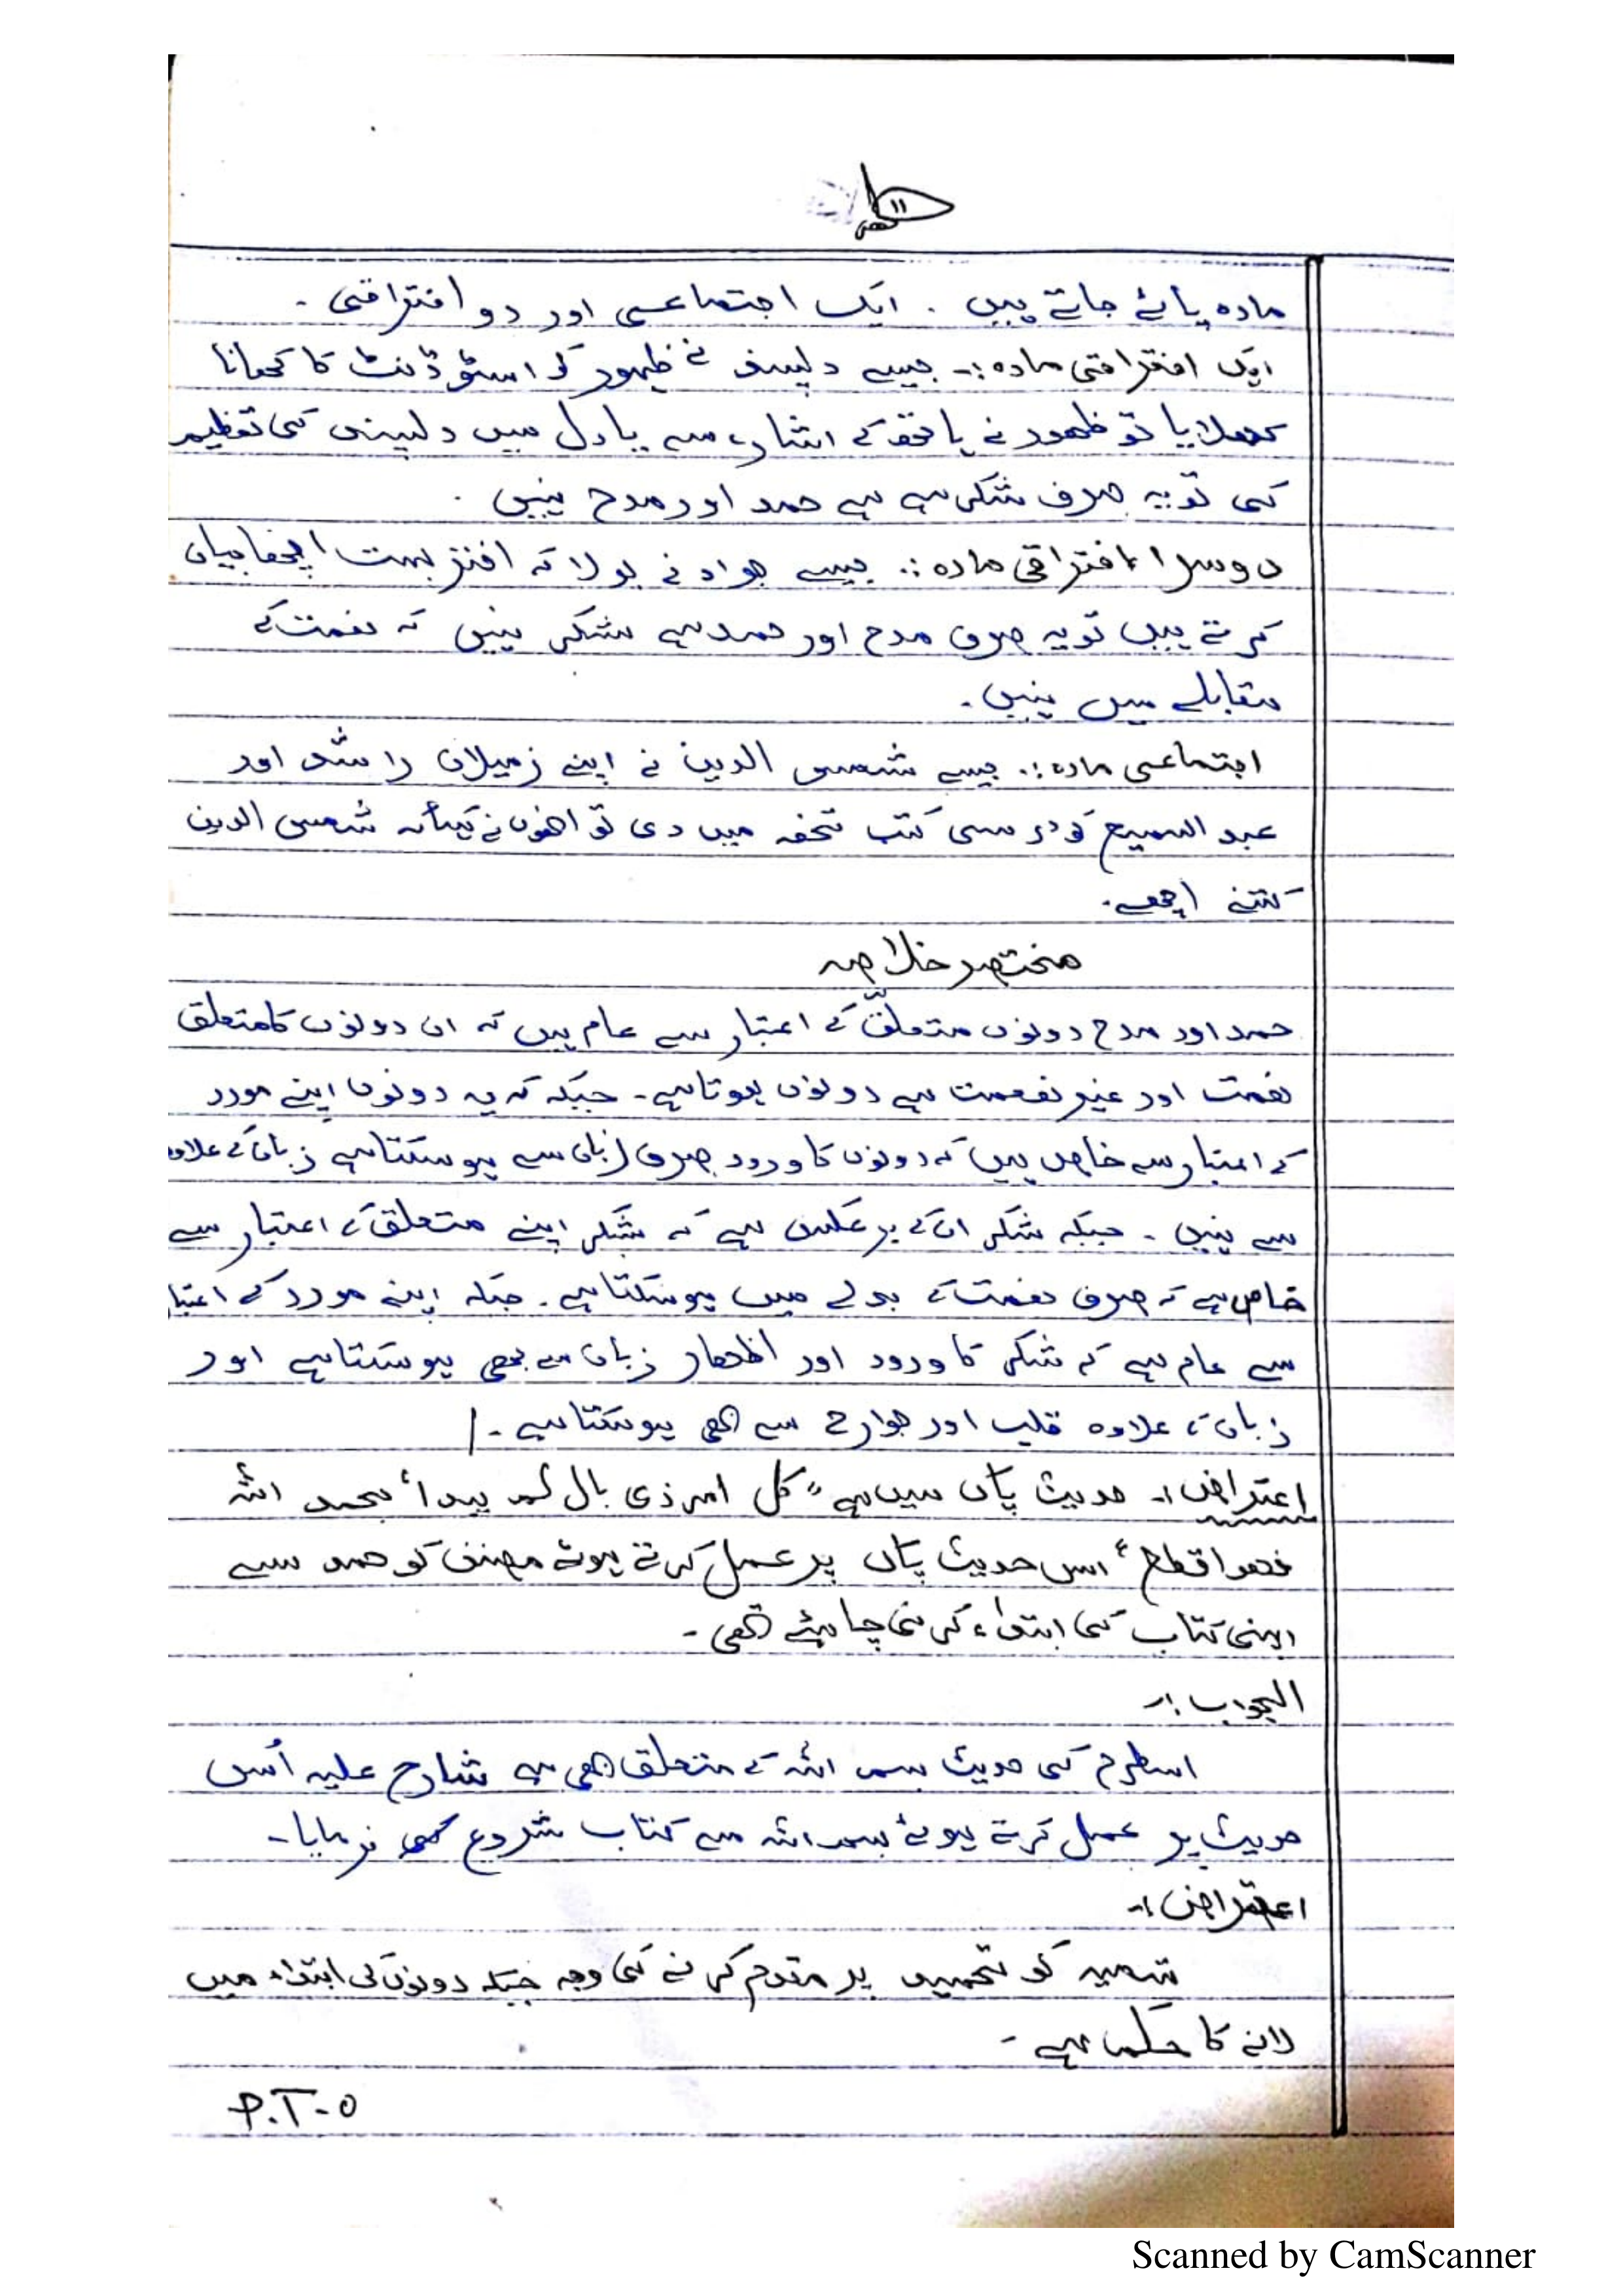 ۱۱
مادہ پائے جاتے ہیں ۔ ایک اجتماعی اور دو افتراقی ۔
ایک افتراقی مادہ :۔ جیسے نے ظہور کو اسٹوڈنٹ کا کھانا
کھلایا تو ظہور نے ہاتھ کے اشارے سے یا دل میں کی تعظیم
کی تو یہ صرف شکر ہے حمد اور مدح نہیں ۔
دوسرا افتراقی مادہ :۔ جیسے جواد نے بولا کہ اختر بہت اچھا بیان
کرتے ہیں تو یہ صرف مدح اور حمد ہے شکر نہیں کہ نعمت کے
مقابلے میں نہیں ۔
اجتماعی مادہ :۔ جیسے شمس الدین نے اپنے زمیلان راشد اور
عبد السمیع کو درسی کتب تحفہ میں دی تو انھوں نے کہا کہ شمس الدین
کتنے اچھے ۔
مختصر خلاصہ
حمد اور مدح دونوں متعلّق کے اعتبار سے عام ہیں کہ ان دونوں کا متعلق
نعمت اور غیر نعمت سے دونوں ہوتا ہے ۔ جبکہ کہ یہ دونوں اپنے مورد
کے اعتبار سے خاص ہیں کہ دونوں کا ورود صرف زبان سے ہو سکتا ہے زبان کے علاوہ
سے نہیں ۔ جبکہ شکر ان کے برعکس ہے کہ شکر اپنے متعلق کے اعتبار سے
خاص ہے کہ صرف نعمت کے بدلے میں ہو سکتا ہے ۔ جبکہ اپنے مورد کے اعتبار
سے عام ہے کہ شکر کا ورود اور اظہار زبان سے بھی ہو سکتا ہے اور
زبان کے علاوہ قلب اور جوارح سے بھی ہو سکتا ہے ۔
اعتراض :۔ حدیث پاک میں ہے "کل امر ذی بال لم یبدأ بحمد اللہ
فھو اقطع" اس حدیث پاک پر عمل کرتے ہوئے مصنف کو حمد سے
اپنی کتاب کی ابتداء کرنی چاہئے تھی ۔
الجواب :۔
اسطرح کی حدیث بسم اللہ کے متعلق بھی ہے شارح علیہ اُس
حدیث پر عمل کرتے ہوئے بسم اللہ سے کتاب شروع فرمایا ۔
اعتراض :۔
تسمیہ کو تحمید پر مقدم کرنے کی وجہ جبکہ دونوں کی ابتداء میں
لانے کا حکم ہے ۔
P.T-O
Scanned by CamScanner